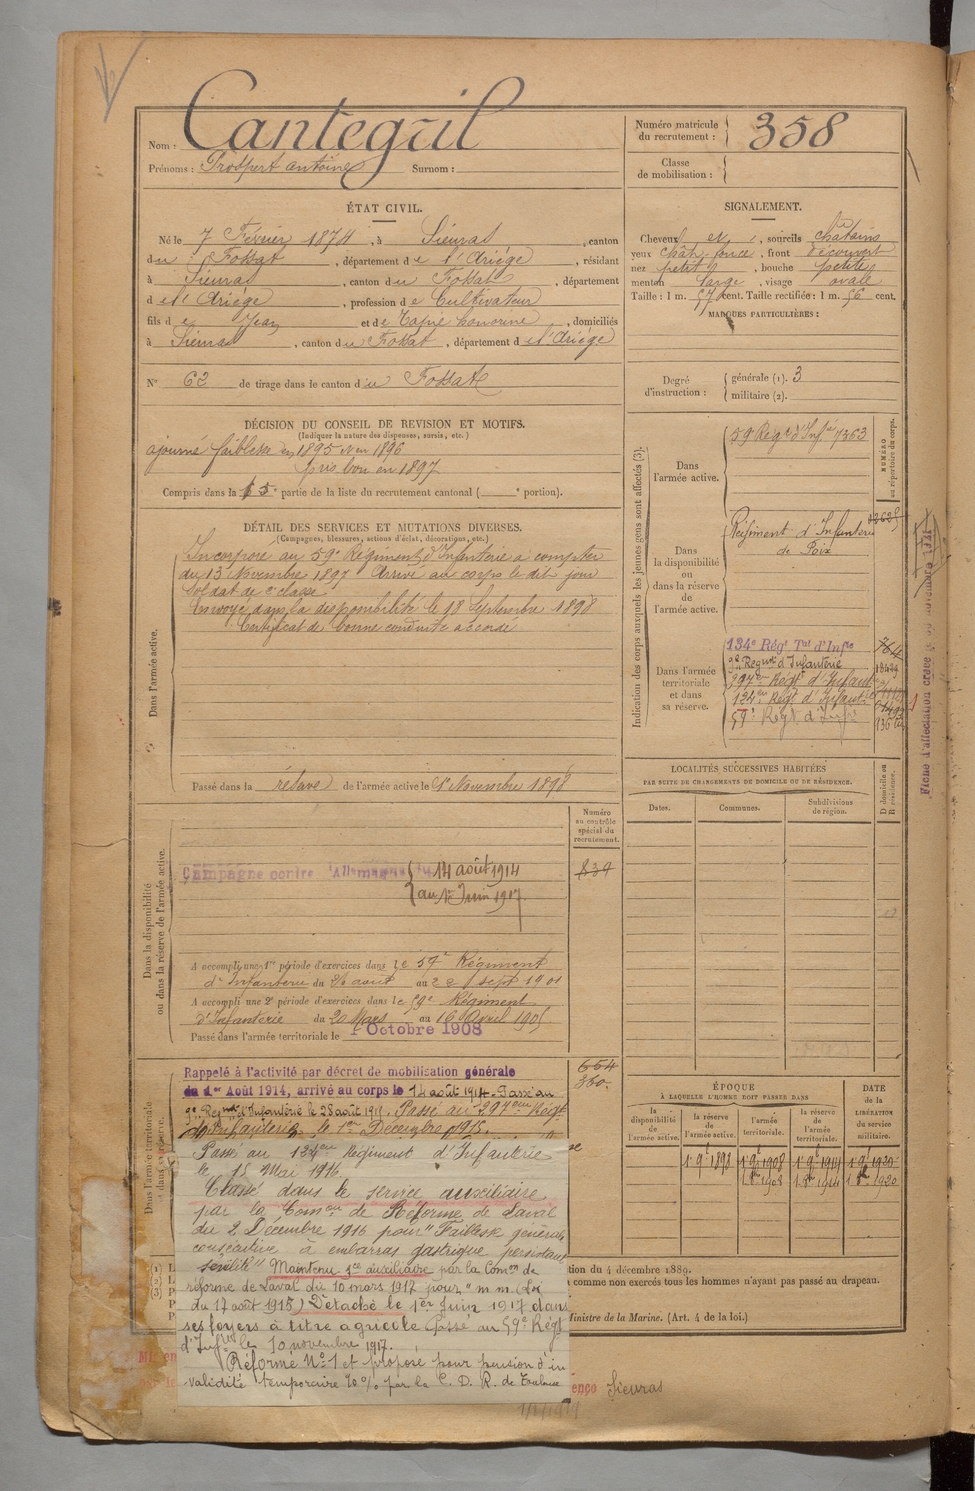 Nom : Cantegril
Prénoms : Prospert antoine Surnom :
Numéro matricule du recrutement : 358
Classe de mobilisation :
ÉTAT CIVIL.
Né le 7 Février 1874, à Sieuras, canton
du Fossat, département de l'Ariège, résidant
à Sieuras, canton du Fossat, département
de l'Ariège, profession de Cultivateur
fils de Jean et de Tapie honorine, domiciliés
à Sieuras, canton du Fossat, département de l'Ariège
N° 62 de tirage dans le canton du Fossat
SIGNALEMENT.
Cheveux et , sourcils châtains
yeux chât. foncé, front découvert
nez petit, bouche petite
menton large, visage ovale
Taille : 1 m. 57 cent. Taille rectifiée : 1 m. 56 cent.
MARQUES PARTICULIÈRES :
Degré d'instruction : générale (1). 3
militaire (2).
DÉCISION DU CONSEIL DE REVISION ET MOTIFS.
(Indiquer la nature des dispenses, sursis, etc.)
ajourné faiblesse en 1895 et en 1896
pris bon en 1897
Compris dans la 5e partie de la liste du recrutement cantonal ( e portion).
DÉTAIL DES SERVICES ET MUTATIONS DIVERSES.
(Campagnes, blessures, actions d'éclat, décorations, etc.)
Dans l'armée active.
Incorporé au 59e Régiment d'Infanterie à compter
du 13 Novembre 1897 Arrivé au corps le dit jour
Soldat de 2e classe
Envoyé dans la disponibilité le 18 Septembre 1898
Certificat de bonne conduite accordé
Passé dans la réserve de l'armée active le 1er Novembre 1898
Indication des corps auxquels les jeunes gens sont affectés (3).
NUMÉRO au répertoire du corps.
Dans l'armée active.
59 Régt d'Infie 7363
Dans la disponibilité ou dans la réserve de l'armée active.
Régiment d'Infanterie
de Foix
Dans l'armée territoriale et dans sa réserve.
134e Régt Tal d'Infie 764
9e Regmt d'Infanterie
297em Régt d'Infant
134em Régt d'Infant
59e Régt d'Infie
Fiche d'affectation créée
LOCALITÉS SUCCESSIVES HABITÉES
PAR SUITE DE CHANGEMENTS DE DOMICILE OU DE RÉSIDENCE.
Dates. Communes. Subdivisions de région. D domicile ou R résidence.
Dans la disponibilité ou dans la réserve de l'armée active.
Numéro au contrôle spécial du recrutement.
839
Campagne contre l'Allemagne du 14 août 1914
au 1er Juin 1917
A accompli une 1re période d'exercices dans le 59e Régiment
d'Infanterie du 26 août au 22 sept 1901
A accompli une 2e période d'exercices dans le 59e Régiment
d'Infanterie du 20 Mars au 16 Avril 1905
Passé dans l'armée territoriale le 1 Octobre 1908
Dans l'armée territoriale et dans sa réserve.
654
360.
Rappelé à l'activité par décret de mobilisation générale
du 1er Août 1914, arrivé au corps le 14 août 1914. Passé au
9e Regmt d'Infanterie le 28 août 1915. Passé au 297em Régt
d'Infanterie le 1er Décembre 1915.
Passé au 134em Régiment d'Infanterie
le 15 Mai 1916
Classé dans le service auxiliaire
par la Comon de Réforme de Laval
du 2 Décembre 1916 pour "Faiblesse générale
consécutive à embarras gastrique persistant
sénilité" Maintenu sce auxiliaire par la Comon de
réforme de Laval du 10 mars 1917 pour "m.m. (Loi
du 17 août 1915) Détaché le 1er Juin 1917 dans
ses foyers à titre agricole Passé au 59e Régt
d'Infie le 10 novembre 1917.
Réformé N°1 et proposé pour pension d'in
validité temporaire 10 % par la C. D. R. de Toulouse
ÉPOQUE
À LAQUELLE L'HOMME DOIT PASSER DANS
la disponibilité de l'armée active. la réserve de l'armée active. l'armée territoriale. la réserve de l'armée territoriale.
DATE de la LIBÉRATION du service militaire.
1er 9bre 1898 1er 9bre 1908 1er 9bre 1914 1er 9bre 1920
1.8bre 1908 1.8bre 1914 1.8bre 1920
tion du 4 décembre 1889.
comme non exercés tous les hommes n'ayant pas passé au drapeau.
Ministre de la Marine. (Art. 4 de la loi.)
Sieuras